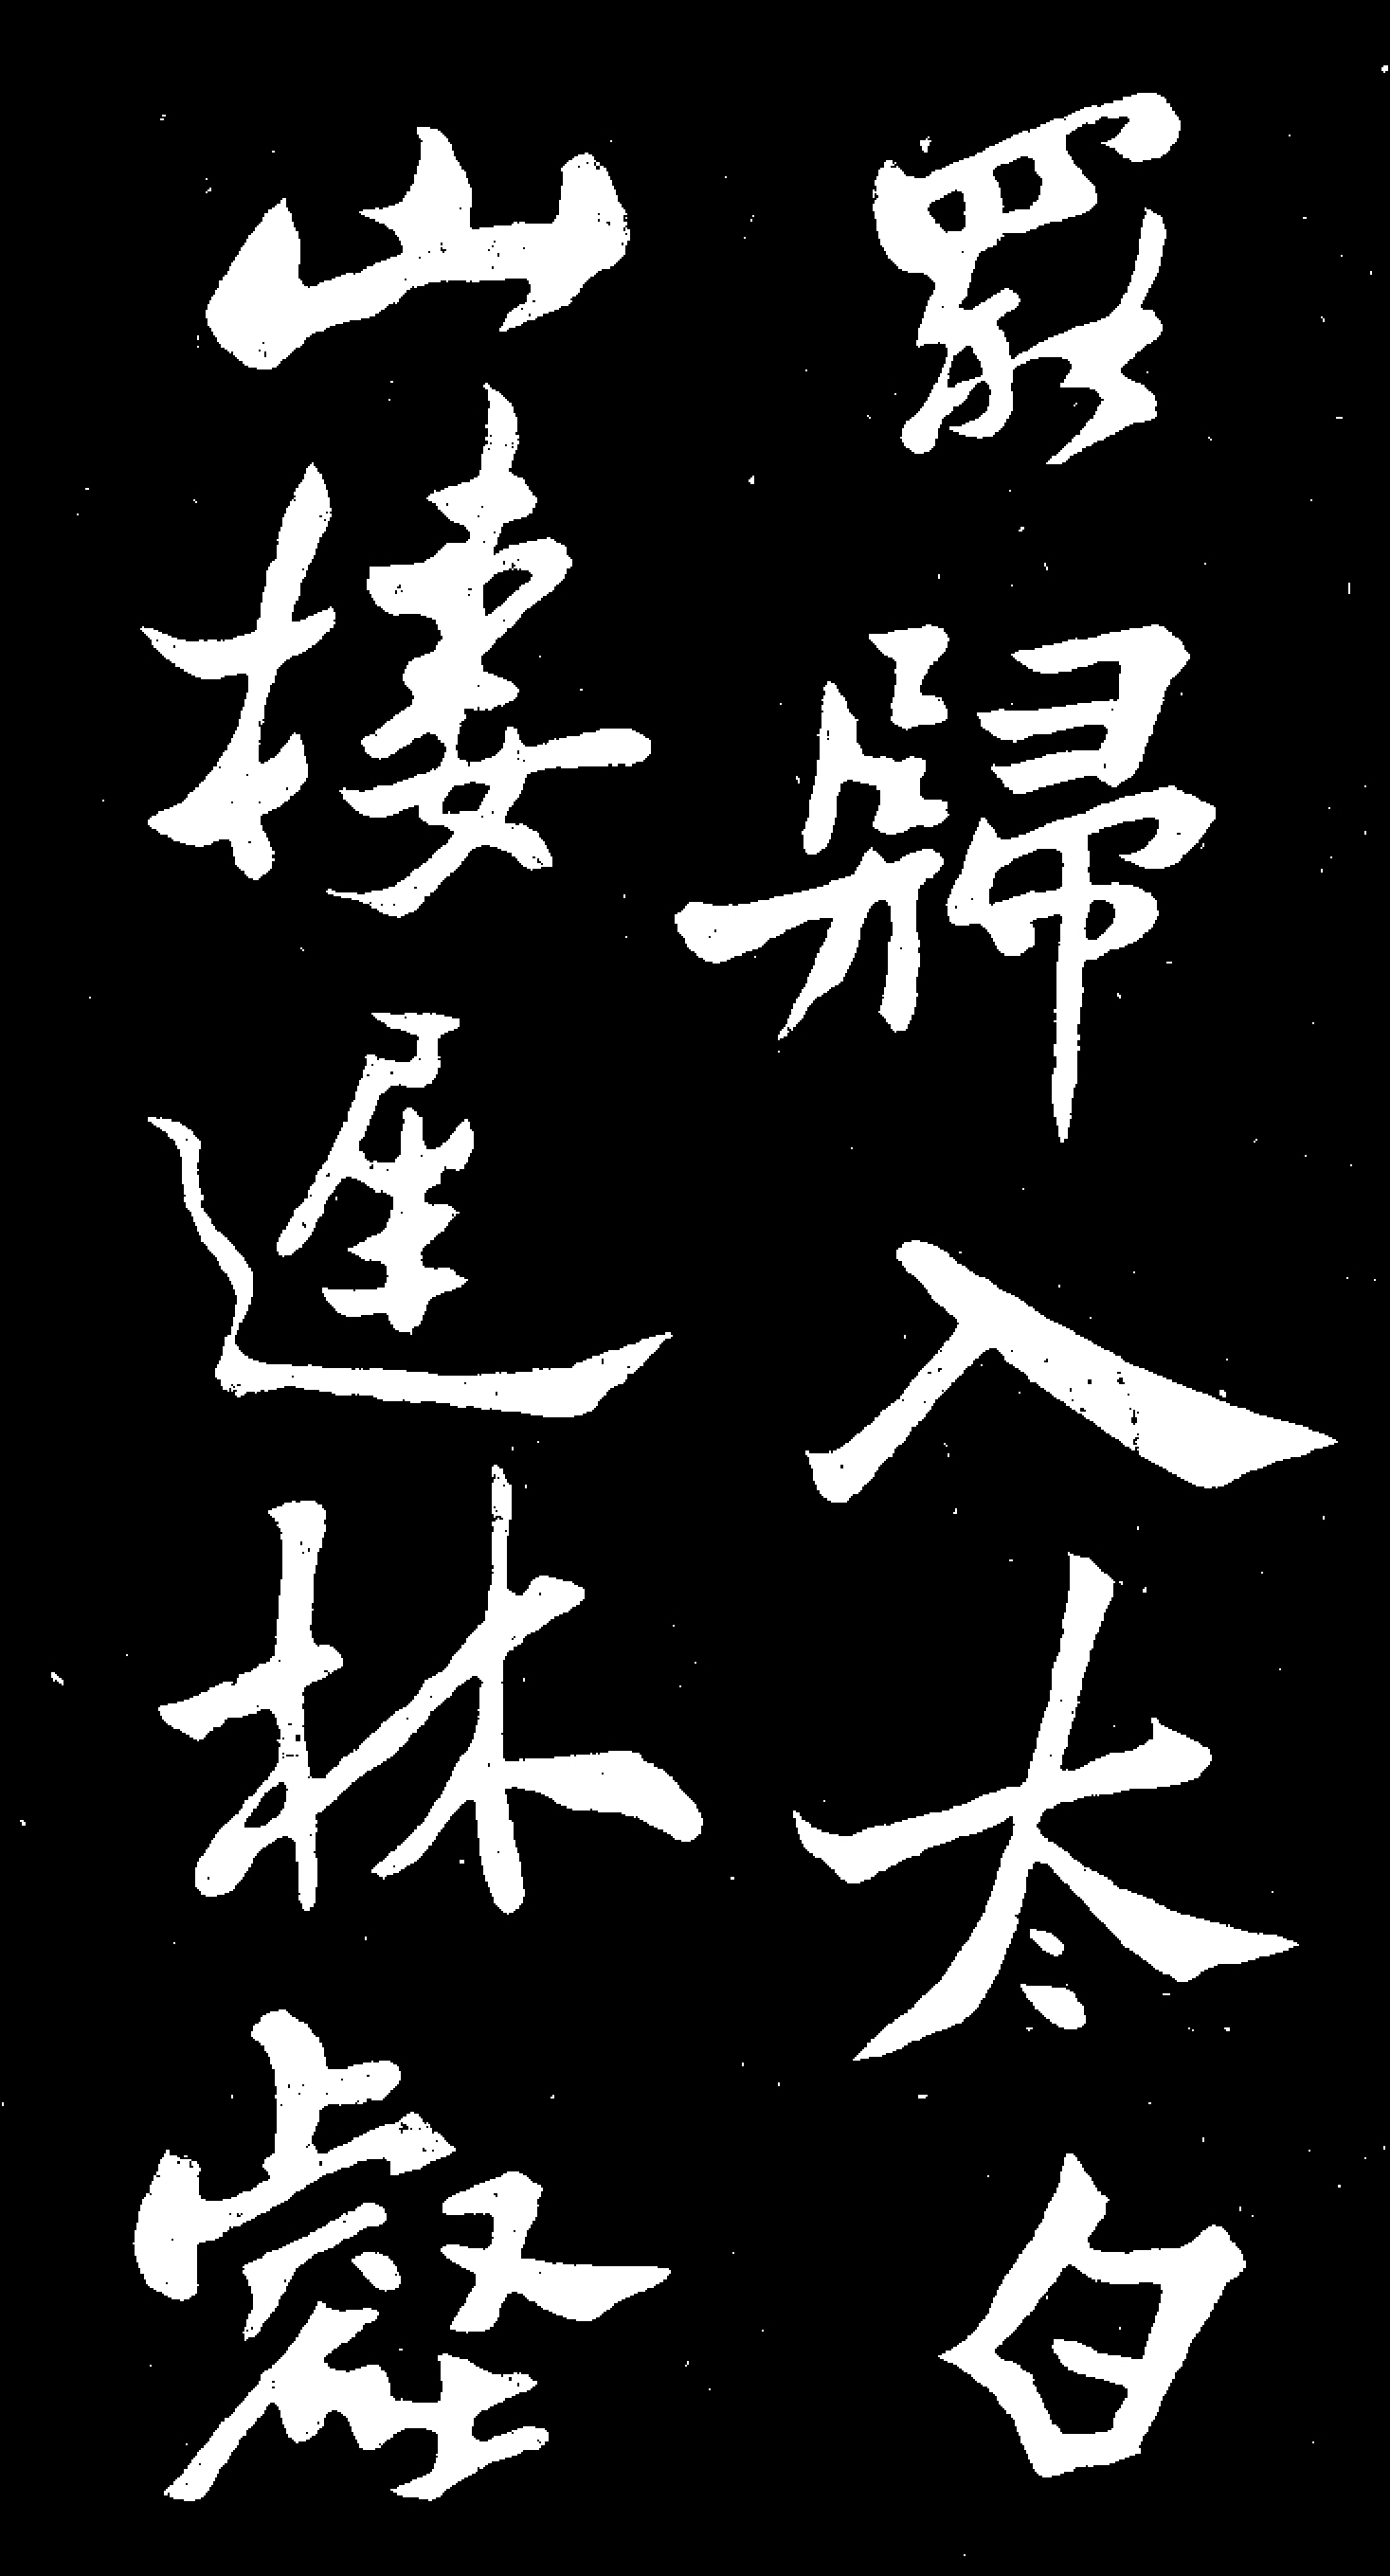 罷歸入太白
山棲遲林壑